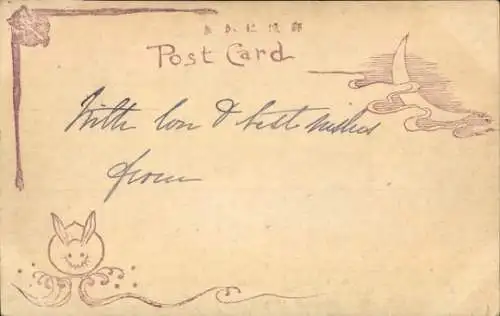 きかはび便郵
Post Card
With love & best wishes
from